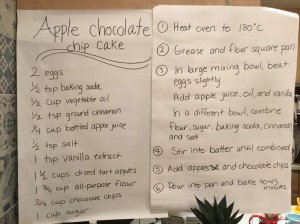 Apple chocolate
chip cake
2 eggs
1/2 tsp baking soda
1/2 cup vegetable oil
1/2 tsp ground cinnamon
1/4 cup bottled apple juice
1/2 tsp salt
1 tsp vanilla extract
1 1/2 cups diced tart apples
1 3/4 cup all-purpose flour
3/4 cup chocolate chips
1 cup sugar
1 Heat oven to 180°C
2 Grease and flour square pan
3 In large mixing bowl, beat
eggs slightly.
Add apple juice, oil, and vanilla
In a different bowl, combine
flour, sugar, baking soda, cinnamon
and salt
4 Stir into batter until combined
5 Add apples and chocolate chips
6 Pour into pan and bake 40-45
minutes